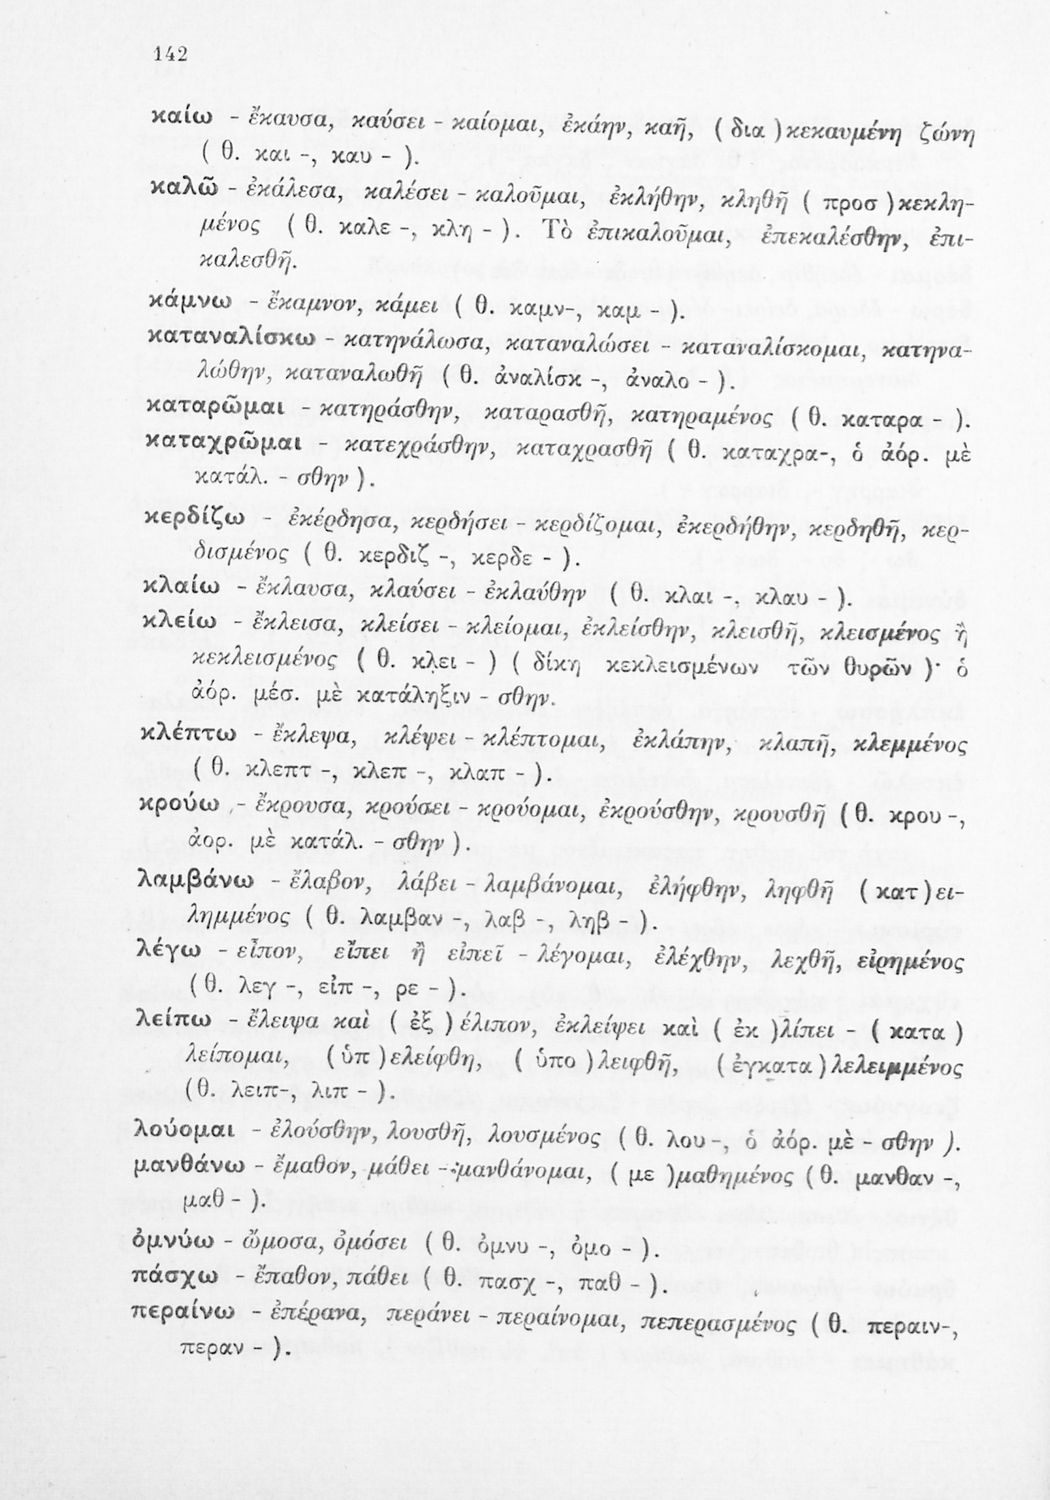 142
καίω - ἔκαυσα, καύσει - καίομαι, ἐκάην, καῆ, ( δια )κεκαυμένη ζώνη
( θ. και -, καυ - ).
καλῶ - ἐκάλεσα, καλέσει - καλοῦμαι, ἐκλήθην, κληθῆ ( προσ )κεκλη-
μένος ( θ. καλε -, κλη - ). Τὸ ἐπικαλοῦμαι, ἐπεκαλέσθην, ἐπι-
καλεσθῆ.
κάμνω - ἔκαμνον, κάμει ( θ. καμν-, καμ - ).
καταναλίσκω - κατηνάλωσα, καταναλώσει - καταναλίσκομαι, κατηνα-
λώθην, καταναλωθῆ ( θ. ἀναλίσκ -, ἀναλο - ).
καταρῶμαι - κατηράσθην, καταρασθῆ, κατηραμένος ( θ. καταρα - ).
καταχρῶμαι - κατεχράσθην, καταχρασθῆ ( θ. καταχρα-, ὁ ἀόρ. μὲ
κατάλ. - σθην ).
κερδίζω - ἐκέρδησα, κερδήσει - κερδίζομαι, ἐκερδήθην, κερδηθῆ, κερ-
δισμένος ( θ. κερδιζ -, κερδε - ).
κλαίω - ἔκλαυσα, κλαύσει - ἐκλαύθην ( θ. κλαι -, κλαυ - ).
κλείω - ἔκλεισα, κλείσει - κλείομαι, ἐκλείσθην, κλεισθῆ, κλεισμένος ἢ
κεκλεισμένος ( θ. κλει - ) ( δίκη κεκλεισμένων τῶν θυρῶν )· ὁ
ἀόρ. μέσ. μὲ κατάληξιν - σθην.
κλέπτω - ἔκλεψα, κλέψει - κλέπτομαι, ἐκλάπην, κλαπῆ, κλεμμένος
( θ. κλεπτ -, κλεπ -, κλαπ - ).
κρούω - ἔκρουσα, κρούσει - κρούομαι, ἐκρούσθην, κρουσθῆ ( θ. κρου -,
ἀορ. μὲ κατάλ. - σθην ).
λαμβάνω - ἔλαβον, λάβει - λαμβάνομαι, ἐλήφθην, ληφθῆ ( κατ )ει-
λημμένος ( θ. λαμβαν -, λαβ -, ληβ - ).
λέγω - εἶπον, εἴπει ἢ εἰπεῖ - λέγομαι, ἐλέχθην, λεχθῆ, εἰρημένος
( θ. λεγ -, εἰπ -, ρε - ).
λείπω - ἔλειψα καὶ ( ἐξ )έλιπον, ἐκλείψει καὶ ( ἐκ )λίπει - ( κατα )
λείπομαι, ( ὑπ )ελείφθη, ( ὑπο )λειφθῆ, ( ἐγκατα )λελειμμένος
(θ. λειπ-, λιπ - ).
λούομαι - ἐλούσθην, λουσθῆ, λουσμένος ( θ. λου -, ὁ ἀόρ. μὲ - σθην ).
μανθάνω - ἔμαθον, μάθει - μανθάνομαι, ( με )μαθημένος ( θ. μανθαν -,
μαθ - ).
ὀμνύω - ὤμοσα, ὀμόσει ( θ. ὀμνυ -, ὀμο - ).
πάσχω - ἔπαθον, πάθει ( θ. πασχ -, παθ - ).
περαίνω - ἐπέρανα, περάνει - περαίνομαι, πεπερασμένος ( θ. περαιν-,
περαν - ).